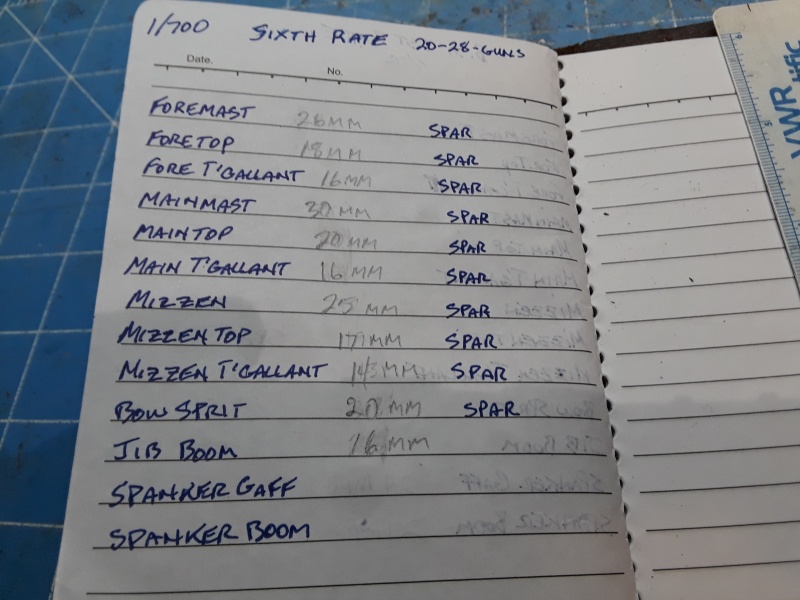 1/700 SIXTH RATE 20-28-GUNS
Date.
No.
FOREMAST 26MM SPAR
FORETOP 18MM SPAR
FORE T'GALLANT 16MM SPAR
MAINMAST 30MM SPAR
MAINTOP 20MM SPAR
MAIN T'GALLANT 16MM SPAR
MIZZEN 25MM SPAR
MIZZEN TOP 17MM SPAR
MIZZEN T'GALLANT SPAR
BOW SPRIT SPAR
JIB BOOM 16MM
SPANKER GAFF
SPANKER BOOM
VWR